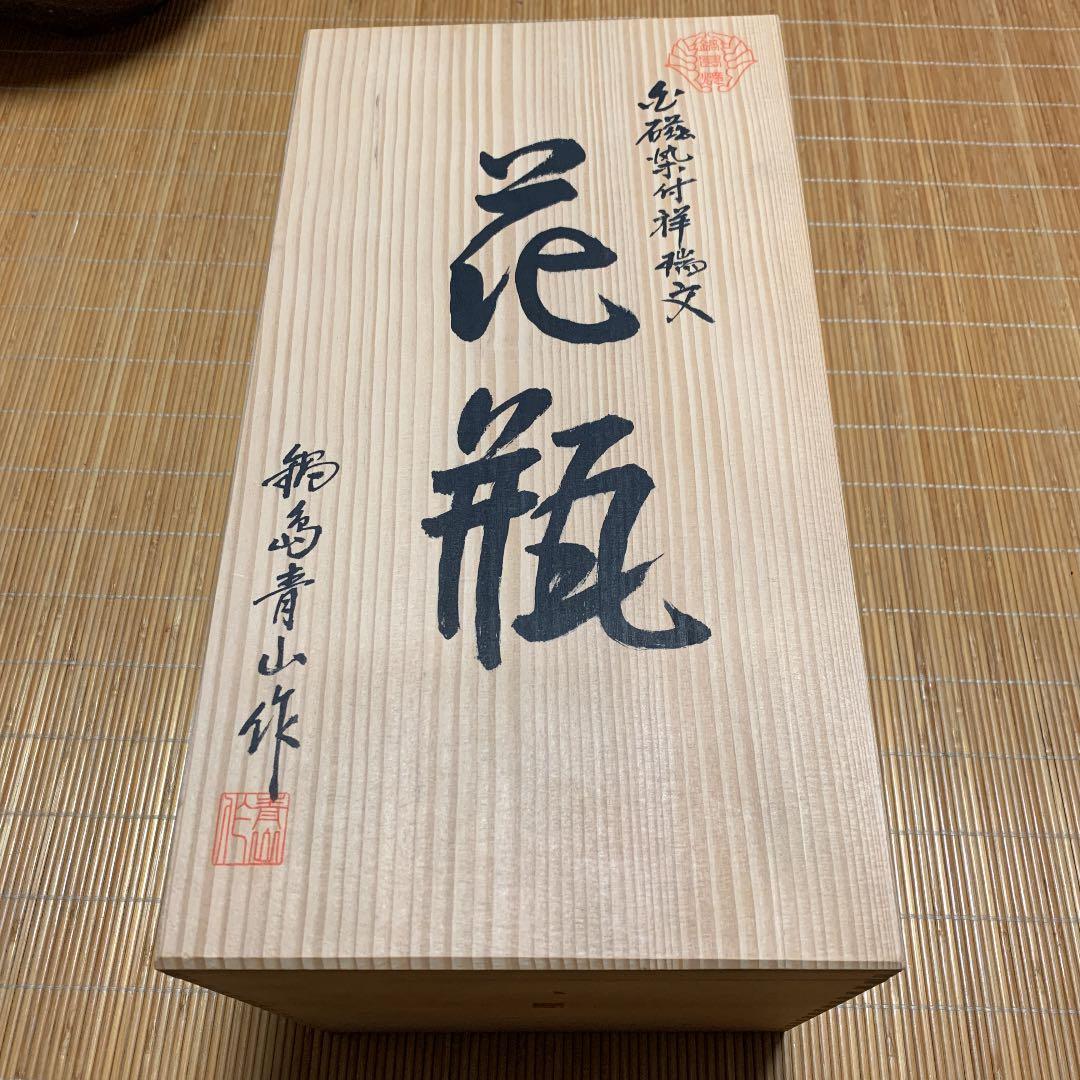 鍋島焼
白磁染付祥瑞文
花瓶
鍋島青山作
青山作